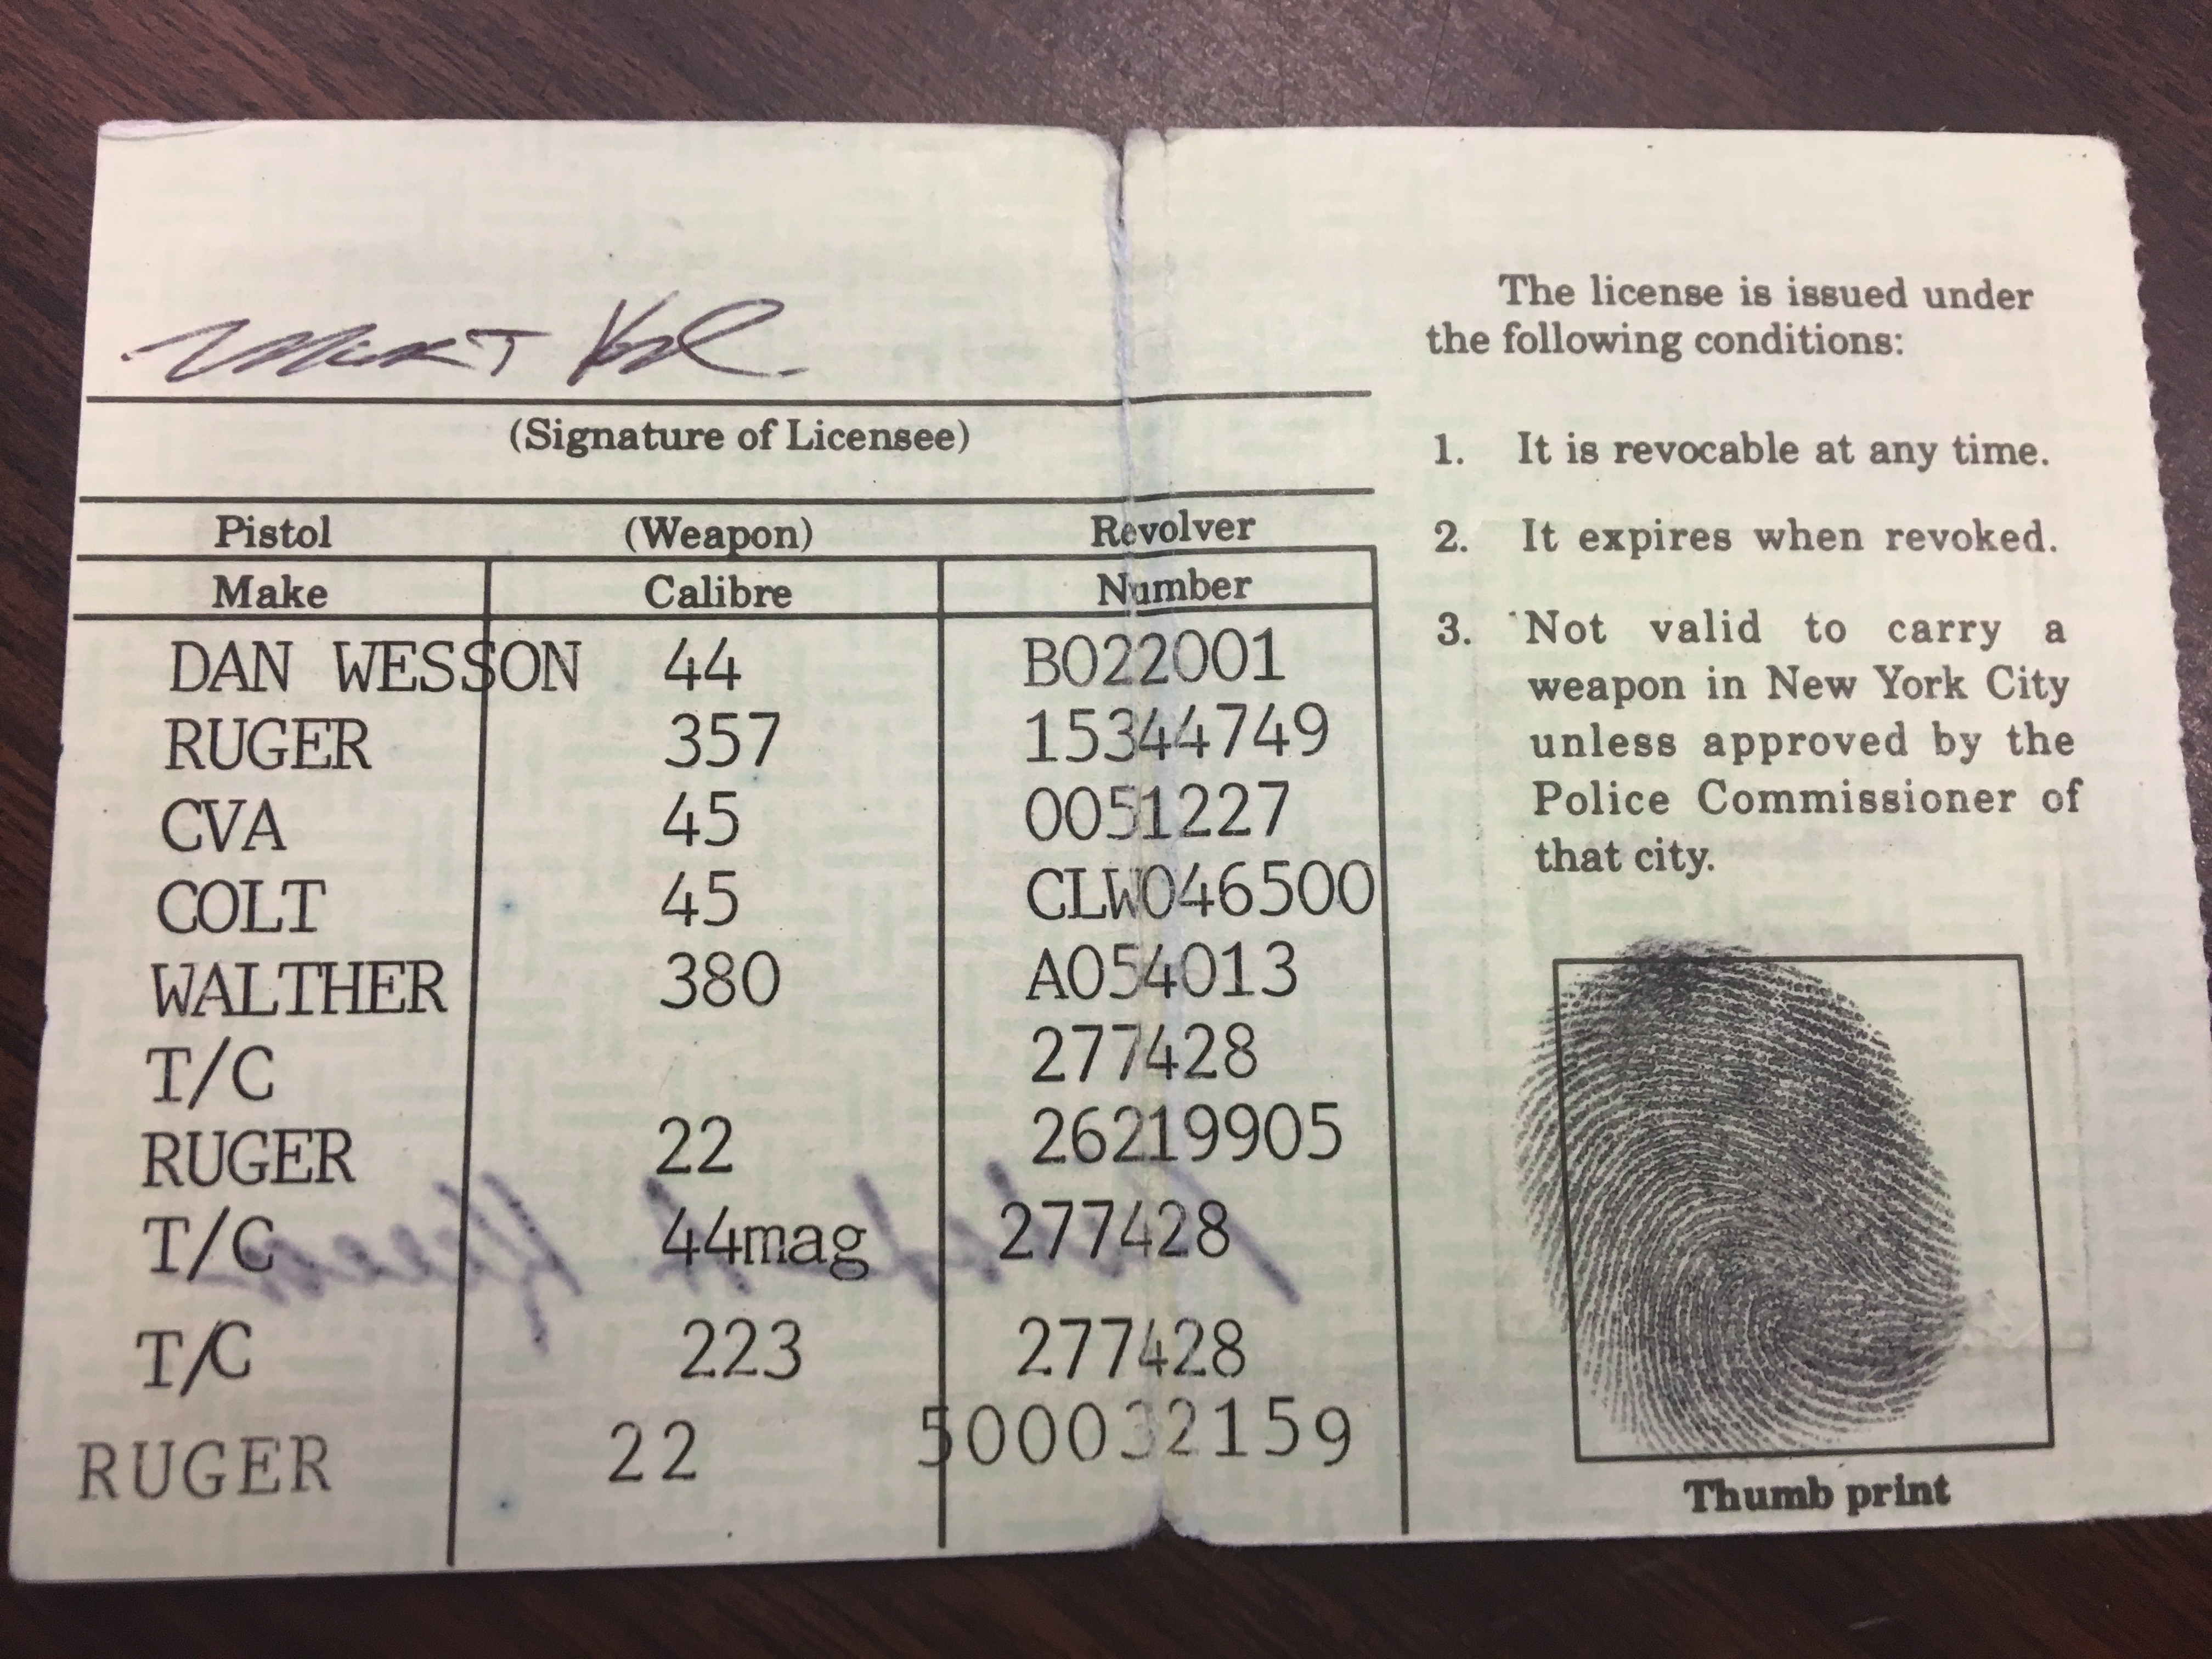 (Signature of Licensee)
Pistol (Weapon) Revolver
Make Calibre Number
DAN WESSON 44 B022001
RUGER 357 15344749
CVA 45 0051227
COLT 45 CLW046500
WALTHER 380 A054013
T/C 277428
RUGER 22 26219905
T/C 44mag 277428
T/C 223 277428
RUGER 22 500032159
The license is issued under
the following conditions:
1. It is revocable at any time.
2. It expires when revoked.
3. Not valid to carry a
weapon in New York City
unless approved by the
Police Commissioner of
that city.
Thumb print